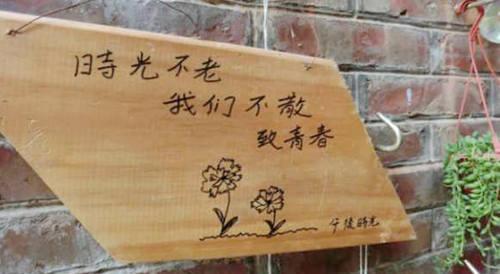 時光不老
我们不散
致青春
午后時光